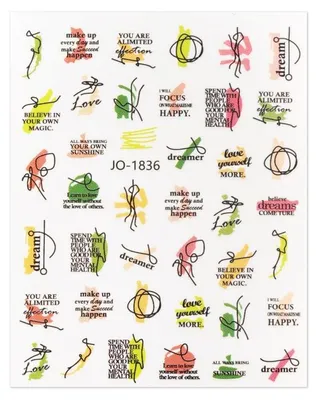 make up
every day and
make Succeed
happen
YOU ARE
ALIMITED
effection
dream
BELIEVE IN
YOUR OWN
MAGIC.
Love
I WILL
FOCUS
ON WHAT MAKES ME
HAPPY.
SPEND
TIME WITH
PEOPLE
WHO ARE
GOOD FOR
YOUR
MENTAL
HEALTH
YOU ARE
ALIMITED
effection
ALL WAYS BRING
YOUR OWN
SUNSHINE
JO-1836
dreamer
love
yourself
MORE.
Learn to love
yourself without
the love of others.
make up
every day and
make Succeed
happen
believe
dreams
COME TURE
dream
SPEND
TIME WITH
PEOPLE
WHO ARE
GOOD FOR
YOUR
MENTAL
HEALTH
dreamer
Love
BELIEVE IN
YOUR OWN
MAGIC.
YOU ARE
ALIMITED
effection
make up
every day and
make Succeed
happen
love
yourself
MORE.
I WILL
FOCUS
ON WHAT MAKES ME
HAPPY.
Love
SPEND
TIME WITH
PEOPLE
WHO ARE
GOOD FOR
YOUR
MENTAL
HEALTH
Learn to love
yourself without
the love of others.
ALL WAYS BRING
YOUR OWN
SUNSHINE
dreamer